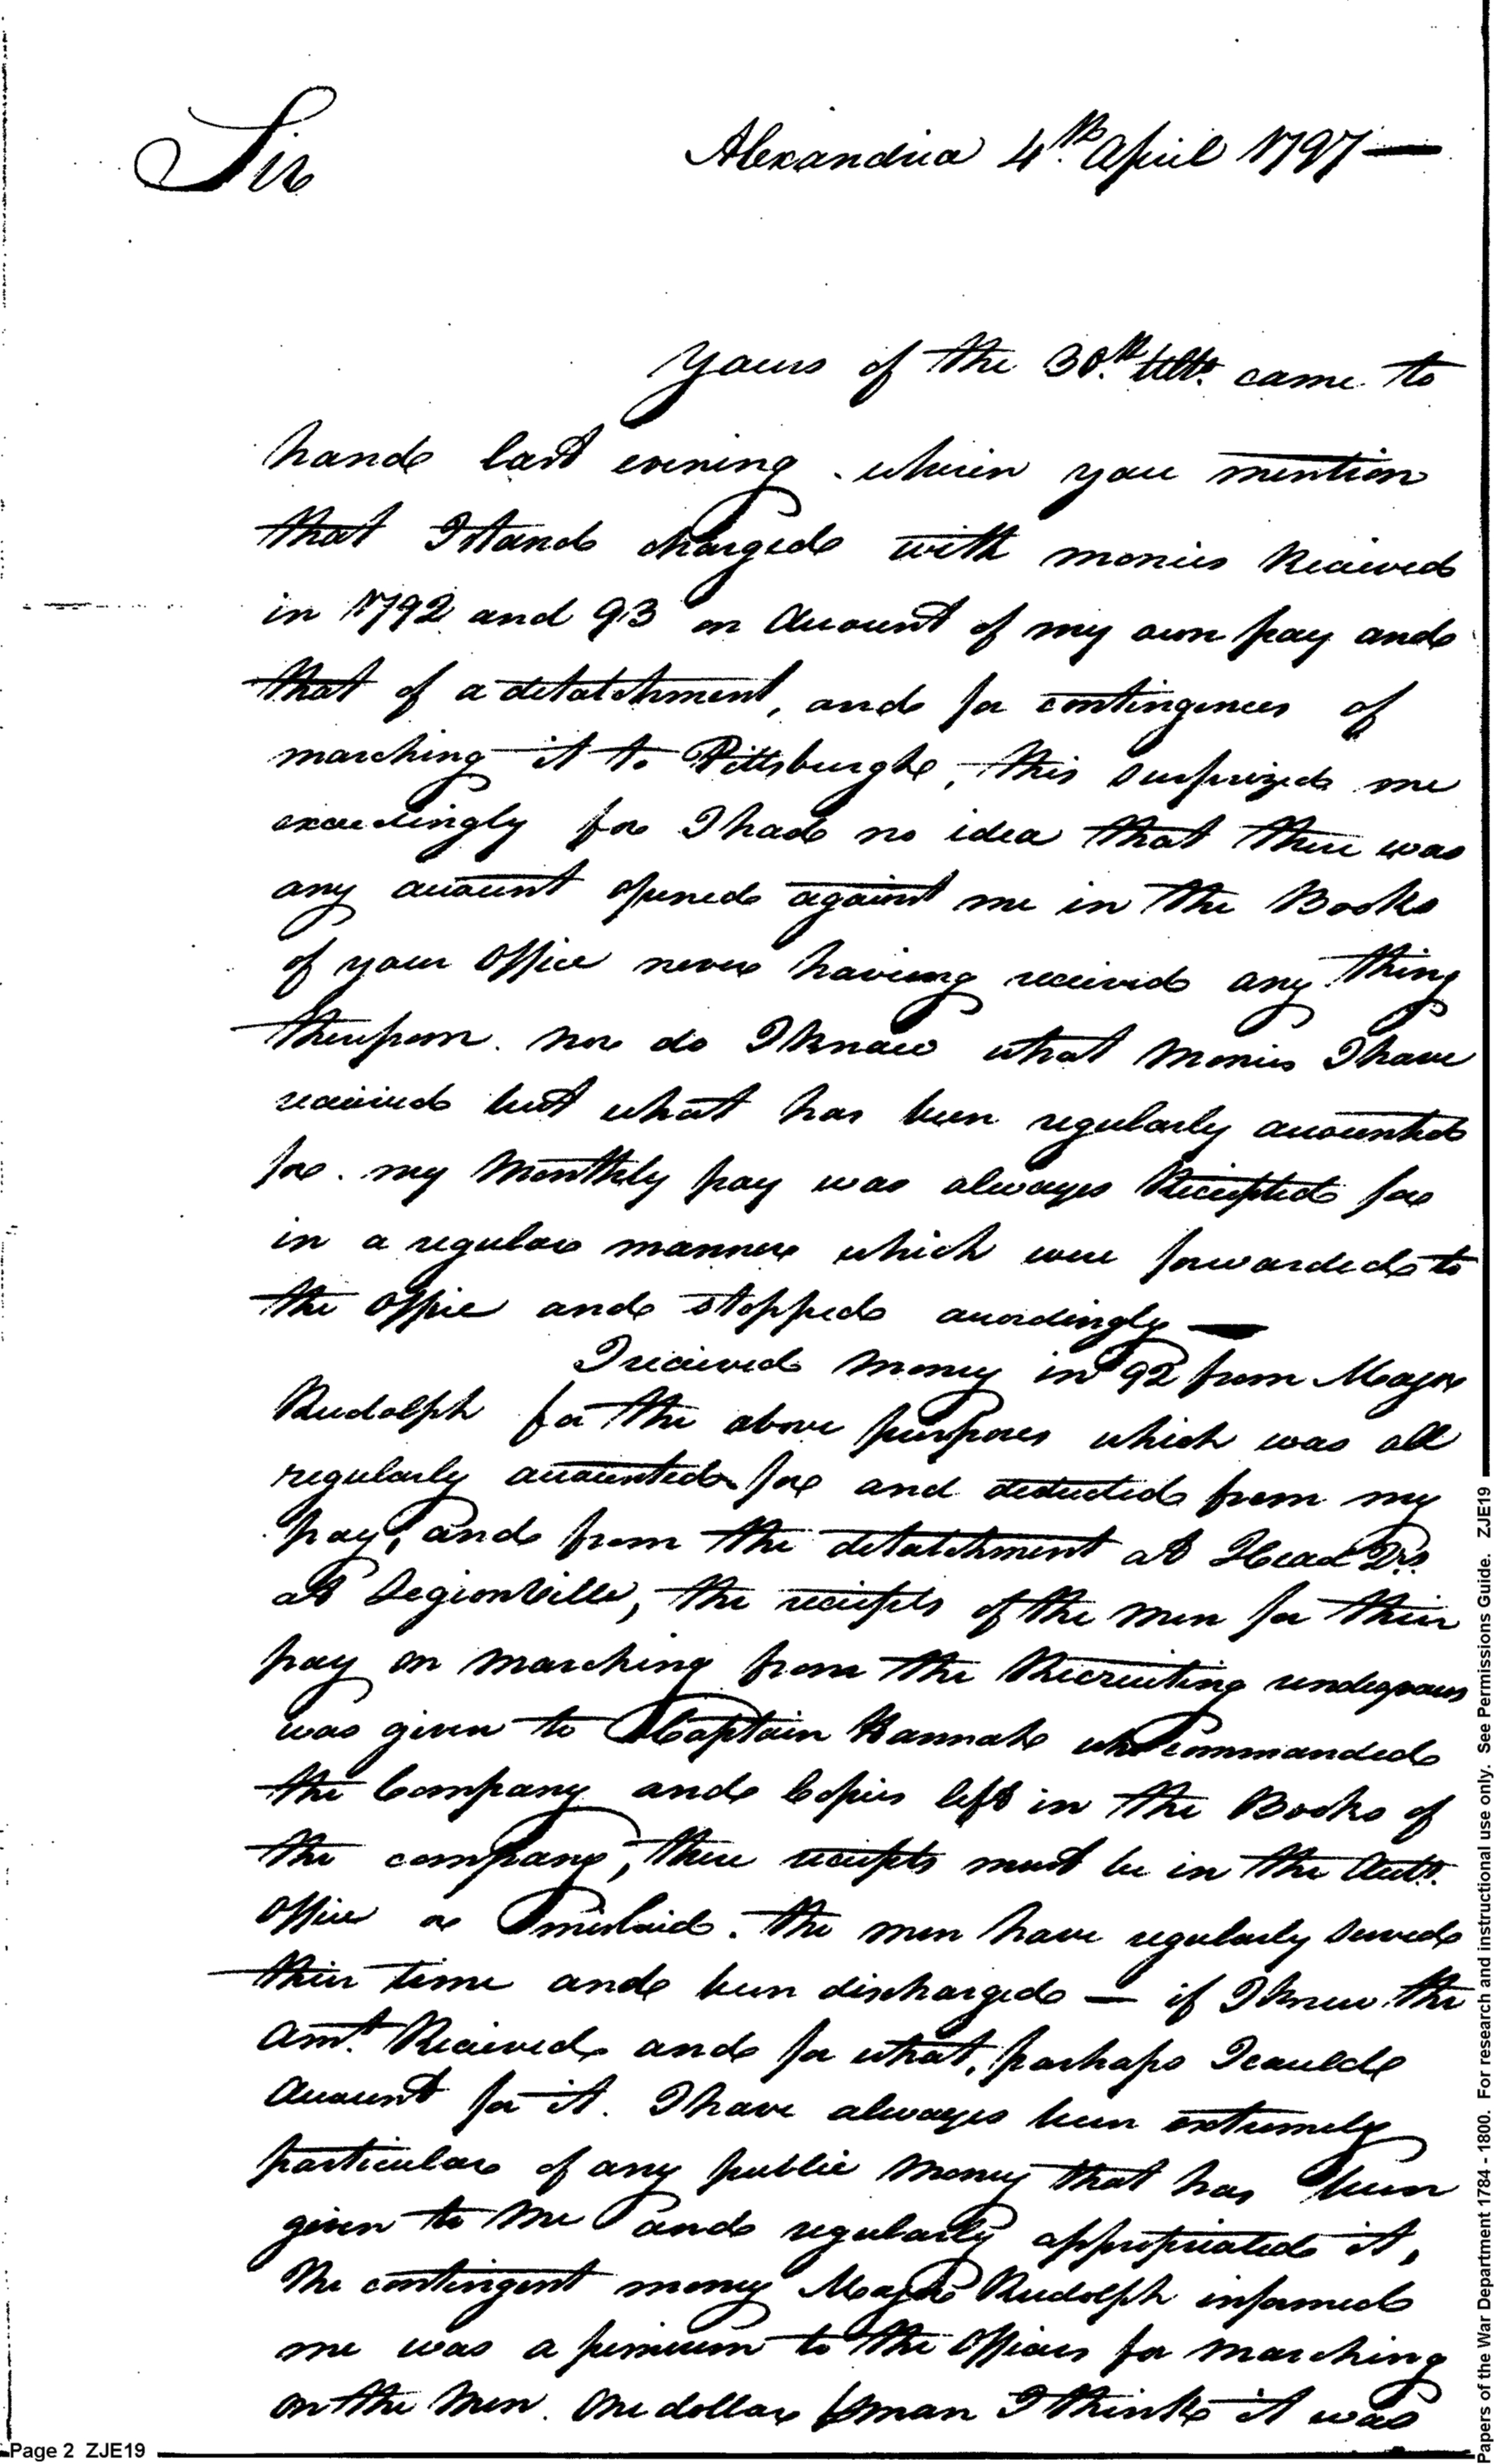 Sir
Alexandria 4th. April 1797 —
Yours of the 30th. Ulto. came to
hand last evening wherein you mention
that I stand charged with monies Received
in 1792 and 93 on Account of my own pay and
that of a detatchment, and for contingences of
marching it to Pittsburgh, this surprized me
exceedingly for I had no idea that there was
any account opened against me in the Books
of your Office never having received any thing
therefrom. nor do I know what Monies I have
received but what has been regularly accounted
for. my Monthly pay was always Receipted for
in a regular manner which were forwarded to
the Office and stopped accordingly —
I received Money in 92 from Major
Rudolph for the above purposes which was all
regularly accounted for and deducted from my
pay, and from the detatchment at Head Qrs.
at Legionville, the reciepts of the men for their
pay on marching from the Recruiting rendezvous
was given to Captain Hannah who commanded
the Company and Copies left in the Books of
the company, these reciepts must be in the Acctt.
Office or mislaid. the men have regularly served
their time and been discharged — if I knew the
Amt. Received and for what, parhaps I could
Account for it. I have always been extremely
particular of any public Money that has been
given to Me and regularly appropriated it,
The contingent money Major Rudolph informed
me was a premium to the Officers for marching
on the Men. One dollar man I think it was
Page 2 ZJE19
Papers of the War Department 1784 - 1800. For research and instructional use only. See Permissions Guide. ZJE19